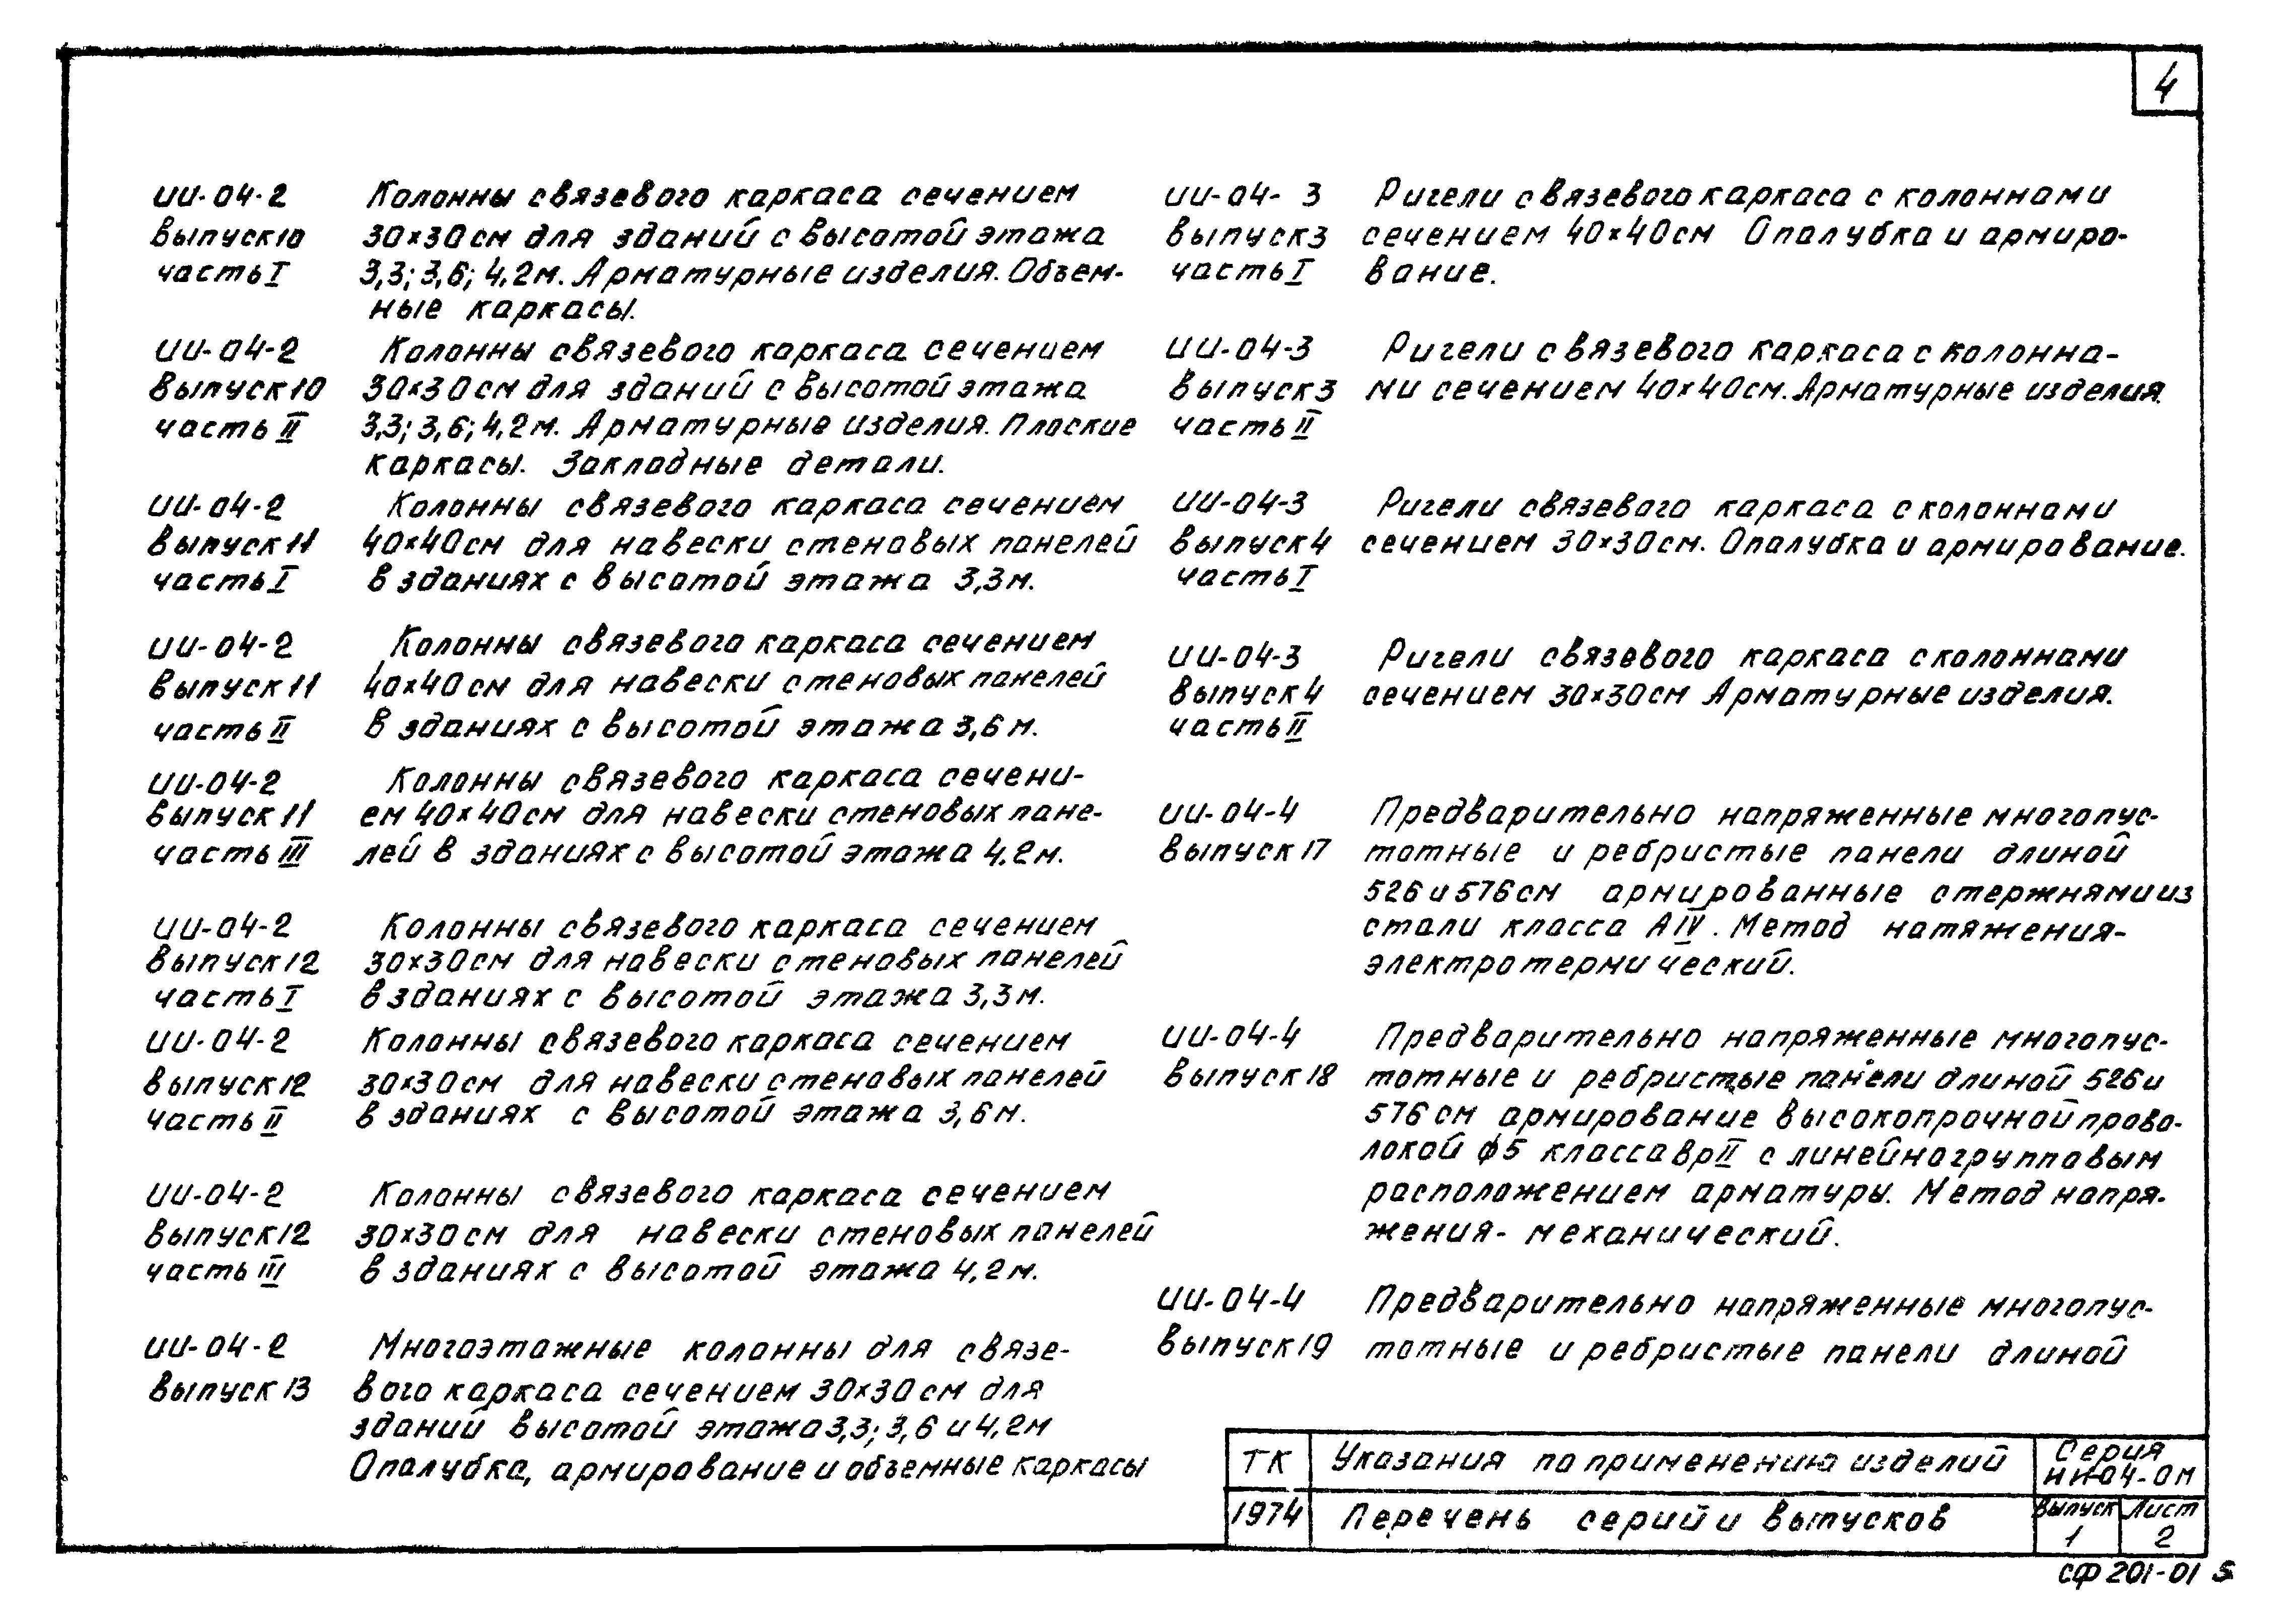 4
ИИ-04-2 Колонны связевого каркаса сечением
выпуск 10 30×30см для зданий с высотой этажа
часть I 3,3; 3,6; 4,2м. Арматурные изделия. Объем-
ные каркасы.
ИИ-04-2 Колонны связевого каркаса сечением
Выпуск 10 30×30см для зданий с высотой этажа
часть II 3,3; 3,6; 4,2м. Арматурные изделия. Плоские
каркасы. Закладные детали.
ИИ-04-2 Колонны связевого каркаса сечением
выпуск 11 40×40см для навески стеновых панелей
часть I в зданиях с высотой этажа 3,3м.
ИИ-04-2 Колонны связевого каркаса сечением
выпуск 11 40×40см для навески стеновых панелей
часть II в зданиях с высотой этажа 3,6м.
ИИ-04-2 Колонны связевого каркаса сечени-
выпуск 11 ем 40×40см для навески стеновых пане-
часть III лей в зданиях с высотой этажа 4,2м.
ИИ-04-2 Колонны связевого каркаса сечением
выпуск 12 30×30см для навески стеновых панелей
часть I в зданиях с высотой этажа 3,3м.
ИИ-04-2 Колонны связевого каркаса сечением
выпуск 12 30×30см для навески стеновых панелей
часть II в зданиях с высотой этажа 3,6м.
ИИ-04-2 Колонны связевого каркаса сечением
выпуск 12 30×30см для навески стеновых панелей
часть III в зданиях с высотой этажа 4,2м.
ИИ-04-2 Многоэтажные колонны для связе-
выпуск 13 вого каркаса сечением 30×30см для
зданий высотой этажа 3,3; 3,6 и 4,2м
Опалубка, армирование и объемные каркасы
ИИ-04-3 Ригели связевого каркаса с колоннами
выпуск 3 сечением 40×40см Опалубка и армиро-
часть I вание.
ИИ-04-3 Ригели связевого каркаса с колонна-
выпуск 3 ми сечением 40×40см. Арматурные изделия.
часть II
ИИ-04-3 Ригели связевого каркаса с колоннами
выпуск 4 сечением 30×30см. Опалубка и армирование.
часть I
ИИ-04-3 Ригели связевого каркаса с колоннами
выпуск 4 сечением 30×30см Арматурные изделия.
часть II
ИИ-04-4 Предварительно напряженные многопус-
выпуск 17 тотные и ребристые панели длиной
526 и 576см армированные стержнями из
стали класса АIV. Метод натяжения-
электротермический.
ИИ-04-4 Предварительно напряженные многопус-
выпуск 18 тотные и ребристые панели длиной 526 и
576см армирование высокопрочной прово-
локой ф5 класса ВрII с линейногрупповым
расположением арматуры. Метод напря-
жения- механический.
ИИ-04-4 Предварительно напряженные многопус-
выпуск 19 тотные и ребристые панели длиной
ТК Указания по применению изделий Серия
ИИ-04-0М
1974 Перечень серий и выпусков Выпуск Лист
1 2
СФ 201-01 5